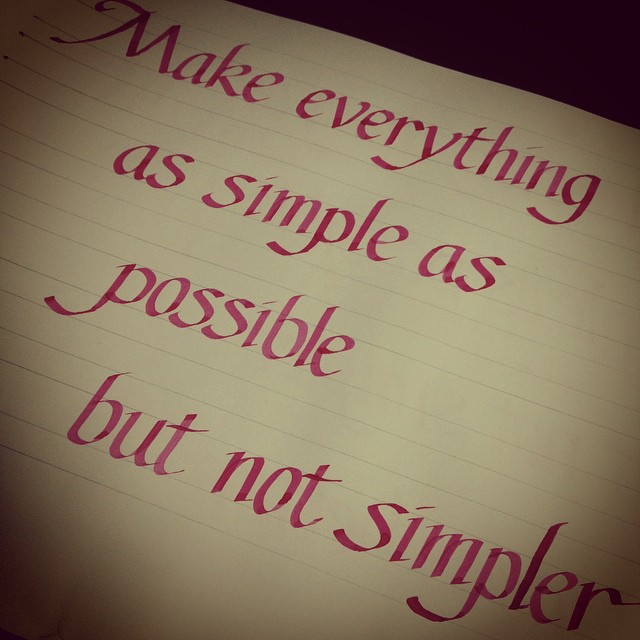 Make everything
as simple as
possible
but not simpler